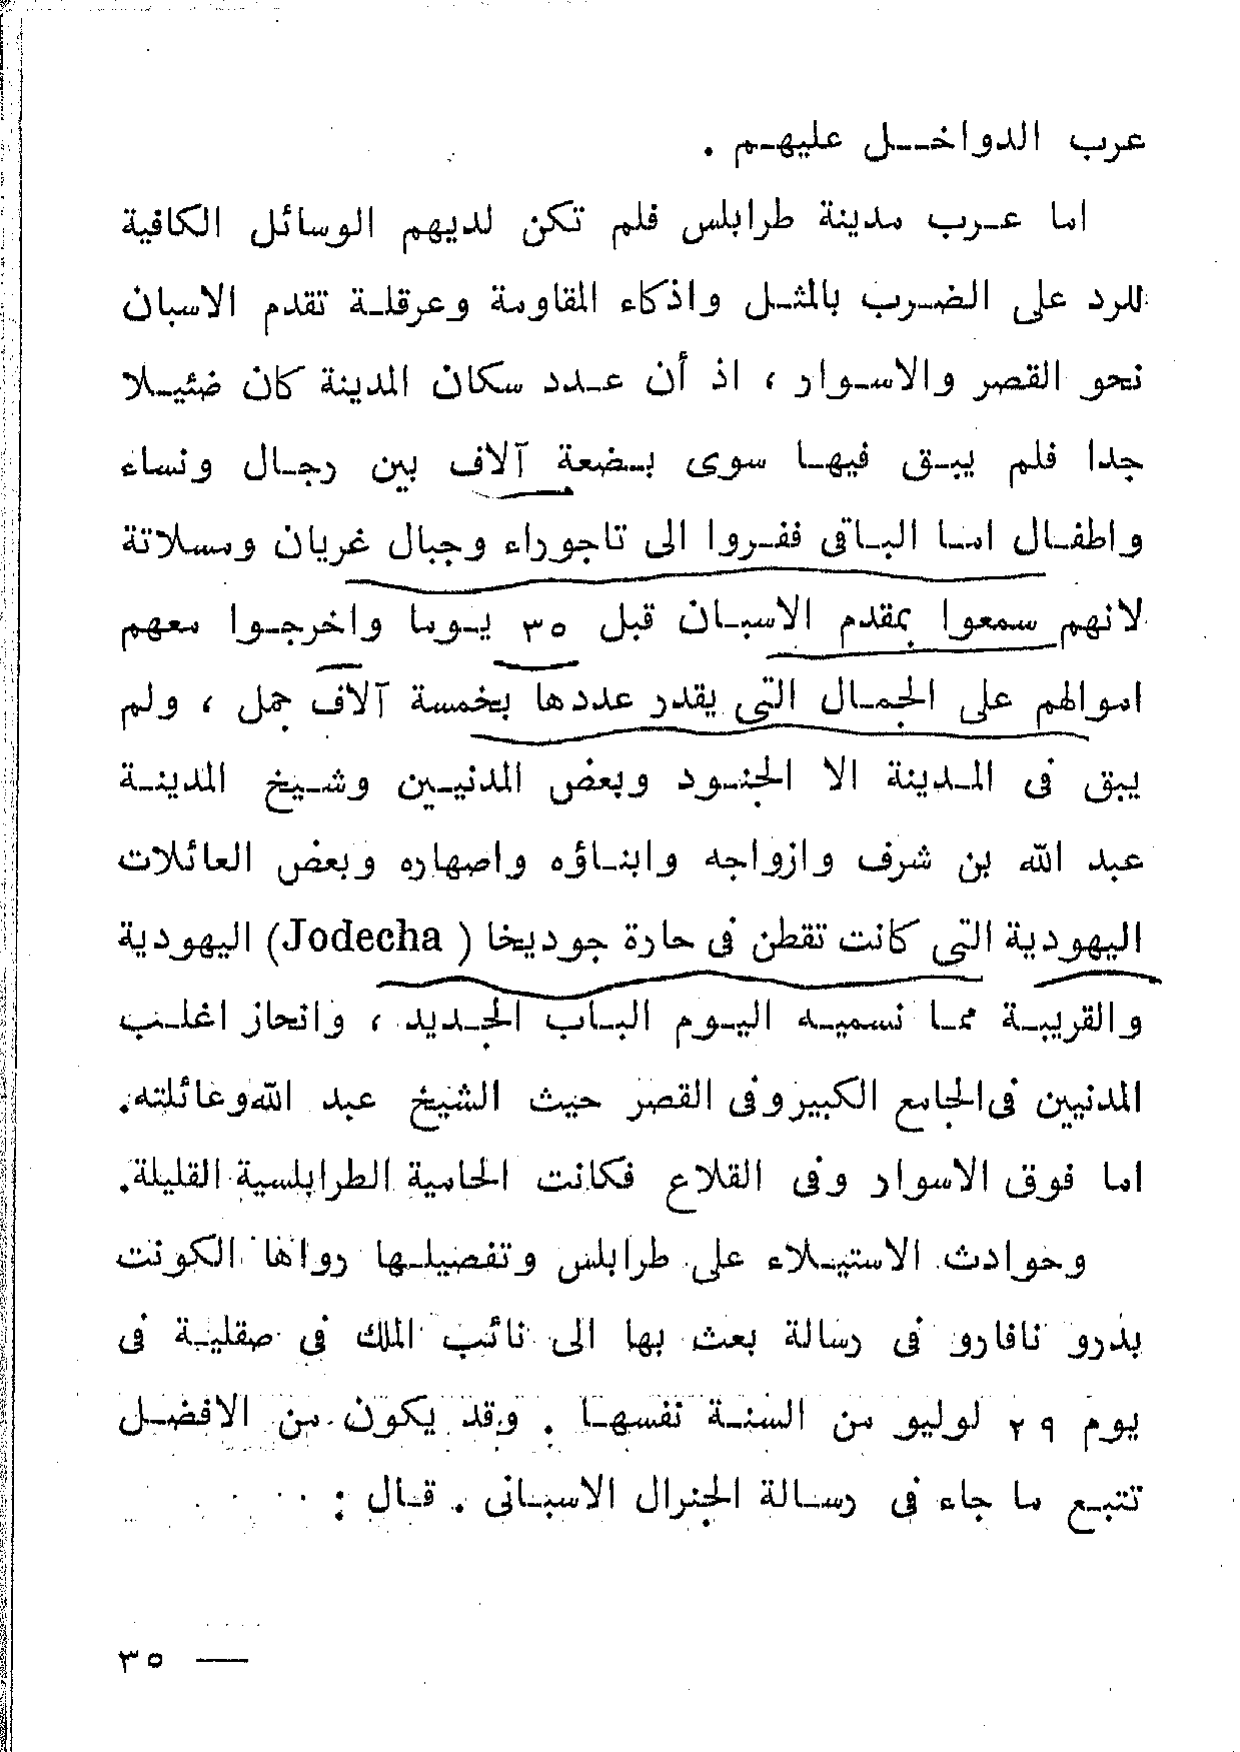 عرب الدواخل عليهم .
اما عرب مدينة طرابلس فلم تكن لديهم الوسائل الكافية
للرد على الضرب بالمثل واذكاء المقاومة وعرقلة تقدم الاسبان
نحو القصر والاسوار ، اذ أن عدد سكان المدينة كان ضئيلا
جدا فلم يبق فيها سوى بضعة آلاف بين رجال ونساء
واطفال اما الباقى ففروا الى تاجوراء وجبال غريان ومسلاتة
لانهم سمعوا بمقدم الاسبان قبل ٣٥ يوما واخرجوا معهم
اموالهم على الجمال التى يقدر عددها بخمسة آلاف جمل ، ولم
يبق فى المدينة الا الجنود وبعض المدنيين وشيخ المدينة
عبد الله بن شرف وازواجه وابناؤه واصهاره وبعض العائلات
اليهودية التى كانت تقطن فى حارة جوديخا ( Jodecha) اليهودية
والقريبة مما نسميه اليوم الباب الجديد ، وانحاز اغلب
المدنيين فى الجامع الكبير وفى القصر حيث الشيخ عبد الله وعائلته.
اما فوق الاسوار وفى القلاع فكانت الحامية الطرابلسية القليلة.
وحوادث الاستيلاء على طرابلس وتفصيلها رواها الكونت
بدرو نافارو فى رسالة بعث بها الى نائب الملك فى صقلية فى
يوم ٢٩ لوليو من السنة نفسها . وقد يكون من الافضل
تتبع ما جاء فى رسالة الجنرال الاسبانى . قال :
— ٣٥